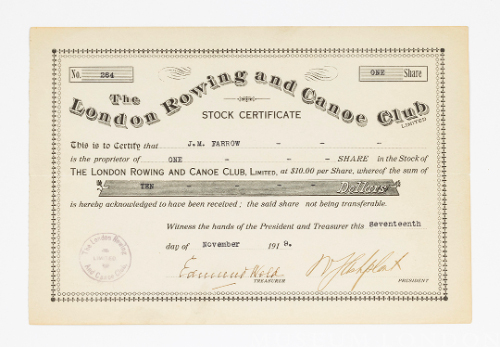 No. 264 ONE Share
The London Rowing and Canoe Club
LIMITED
STOCK CERTIFICATE
This is to Certify that J.M. FARROW - - -
is the proprietor of ONE - - - SHARE in the Stock of
THE LONDON ROWING AND CANOE CLUB, LIMITED, at $10.00 per Share, whereof the sum of
TEN - - - - - Dollars
is hereby acknowledged to have been received; the said share not being transferable.
Witness the hands of the President and Treasurer this Seventeenth
day of November 1919.
The London Rowing
LIMITED
And Canoe Club
TREASURER
PRESIDENT